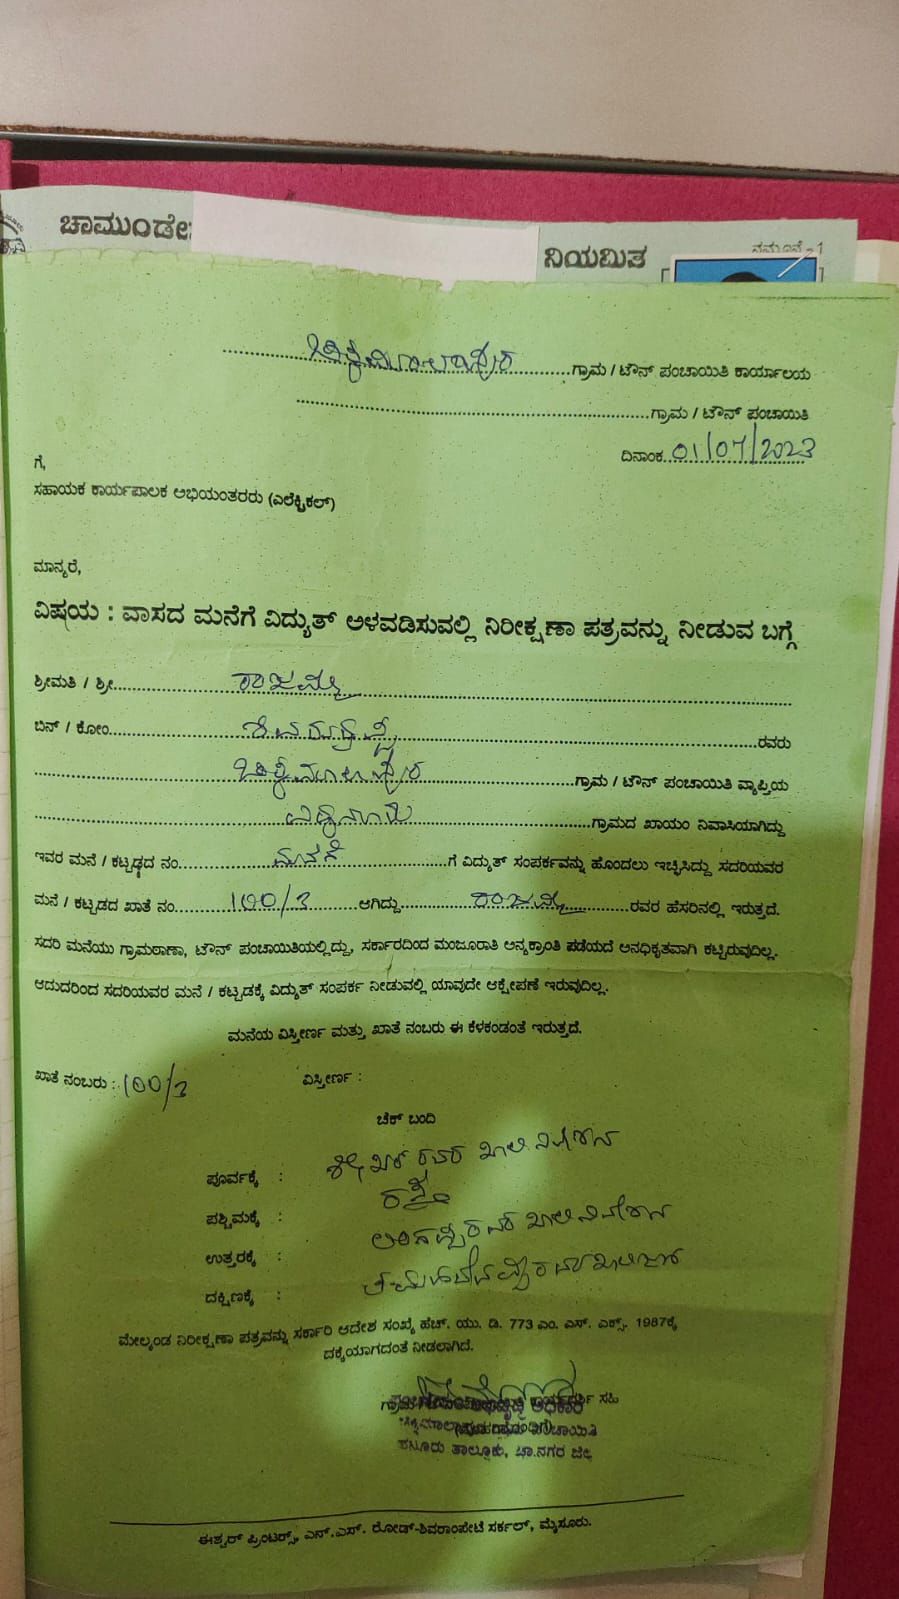 ಚಾಮುಂಡೇ
ನಿಯಮಿತ
ನಮೂನೆ - 1
ಚಿಕ್ಕಮಾಲಾಪುರ ಗ್ರಾಮ / ಟೌನ್ ಪಂಚಾಯಿತಿ ಕಾರ್ಯಾಲಯ
ಗ್ರಾಮ / ಟೌನ್ ಪಂಚಾಯಿತಿ
ದಿನಾಂಕ 01/07/2023
ಗೆ,
ಸಹಾಯಕ ಕಾರ್ಯಪಾಲಕ ಅಭಿಯಂತರರು (ಎಲೆಕ್ಟ್ರಿಕಲ್)
ಮಾನ್ಯರೆ,
ವಿಷಯ : ವಾಸದ ಮನೆಗೆ ವಿದ್ಯುತ್ ಅಳವಡಿಸುವಲ್ಲಿ ನಿರೀಕ್ಷಣಾ ಪತ್ರವನ್ನು ನೀಡುವ ಬಗ್ಗೆ
ಶ್ರೀಮತಿ / ಶ್ರೀ ರಾಜಮ್ಮ
ಬಿನ್ / ಕೋಂ ಶಿವರುದ್ರಪ್ಪ ರವರು
ಚಿಕ್ಕಮಾಲಾಪುರ ಗ್ರಾಮ / ಟೌನ್ ಪಂಚಾಯಿತಿ ವ್ಯಾಪ್ತಿಯ
ಗ್ರಾಮದ ಖಾಯಂ ನಿವಾಸಿಯಾಗಿದ್ದು
ಇವರ ಮನೆ / ಕಟ್ಟಡದ ನಂ. ಮನೆಗೆ ಗೆ ವಿದ್ಯುತ್ ಸಂಪರ್ಕವನ್ನು ಹೊಂದಲು ಇಚ್ಛಿಸಿದ್ದು ಸದರಿಯವರ
ಮನೆ / ಕಟ್ಟಡದ ಖಾತೆ ನಂ. 100/3 ಆಗಿದ್ದು ರಾಜಮ್ಮ ರವರ ಹೆಸರಿನಲ್ಲಿ ಇರುತ್ತದೆ.
ಸದರಿ ಮನೆಯು ಗ್ರಾಮಠಾಣಾ, ಟೌನ್ ಪಂಚಾಯಿತಿಯಲ್ಲಿದ್ದು, ಸರ್ಕಾರದಿಂದ ಮಂಜೂರಾತಿ ಅನ್ಯಕ್ರಾಂತಿ ಪಡೆಯದೆ ಅನಧಿಕೃತವಾಗಿ ಕಟ್ಟಿರುವುದಿಲ್ಲ.
ಆದುದರಿಂದ ಸದರಿಯವರ ಮನೆ / ಕಟ್ಟಡಕ್ಕೆ ವಿದ್ಯುತ್ ಸಂಪರ್ಕ ನೀಡುವಲ್ಲಿ ಯಾವುದೇ ಆಕ್ಷೇಪಣೆ ಇರುವುದಿಲ್ಲ.
ಮನೆಯ ವಿಸ್ತೀರ್ಣ ಮತ್ತು ಖಾತೆ ನಂಬರು ಈ ಕೆಳಕಂಡಂತೆ ಇರುತ್ತದೆ.
ಖಾತೆ ನಂಬರು : 100/3 ವಿಸ್ತೀರ್ಣ :
ಚೆಕ್ ಬಂದಿ
ಪೂರ್ವಕ್ಕೆ : ರವರ ಖಾಲಿ ನಿವೇಶನ
ಪಶ್ಚಿಮಕ್ಕೆ : ರಸ್ತೆ
ಉತ್ತರಕ್ಕೆ : ಲಿಂಗಪ್ಪರವರ ಖಾಲಿ ನಿವೇಶನ
ದಕ್ಷಿಣಕ್ಕೆ :
ಮೇಲ್ಕಂಡ ನಿರೀಕ್ಷಣಾ ಪತ್ರವನ್ನು ಸರ್ಕಾರಿ ಆದೇಶ ಸಂಖ್ಯೆ ಹೆಚ್. ಯು. ಡಿ. 773 ಎಂ. ಎಸ್. ಎಕ್ಸ್. 1987ಕ್ಕೆ
ದಕ್ಕೆಯಾಗದಂತೆ ನೀಡಲಾಗಿದೆ.
ಕಾರ್ಯದರ್ಶಿ ಸಹಿ
ಹನೂರು ತಾಲ್ಲೂಕು, ಚಾ.ನಗರ ಜಿಲ್ಲೆ
ಈಶ್ವರ್ ಪ್ರಿಂಟರ್ಸ್, ಎನ್.ಎಸ್. ರೋಡ್-ಶಿವರಾಂಪೇಟೆ ಸರ್ಕಲ್, ಮೈಸೂರು.